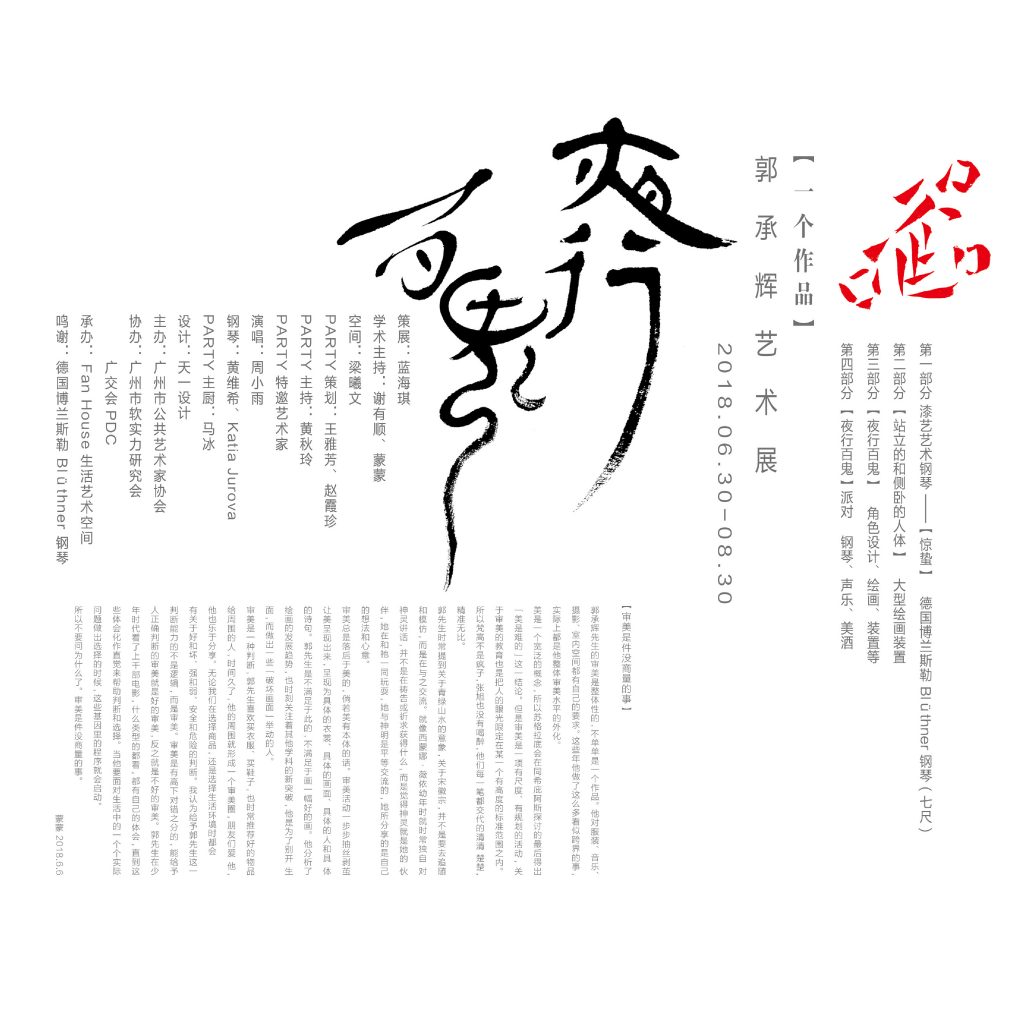 第一部分 漆艺艺术钢琴——【惊蛰】 德国博兰斯勒 Blüthner 钢琴（七尺）
第二部分【站立的和侧卧的人体】 大型绘画装置
第三部分【夜行百鬼】 角色设计、绘画、装置等
第四部分【夜行百鬼】派对 钢琴、声乐、美酒
【一个作品】
郭承辉艺术展
2018.06.30-08.30
夜行
百鬼
策展：蓝海琪
学术主持：谢有顺、蒙蒙
空间：梁曦文
PARTY 策划：王雅芳、赵霞珍
PARTY 主持：黄秋玲
PARTY 特邀艺术家
演唱：周小雨
钢琴：黄维希、Katia Jurova
PARTY 主厨：马冰
设计：天一设计
主办：广州市公共艺术家协会
协办：广州市软实力研究会
广交会 PDC
承办：Fan House 生活艺术空间
鸣谢：德国博兰斯勒 Blüthner 钢琴
【审美是件没商量的事】
郭承辉先生的审美是整体性的，不单单是一个作品。他对服装、音乐、
摄影、室内空间都有自己的要求。这些年他做了这么多看似跨界的事，
实际上都是他整体审美水平的外化。
美是一个宽泛的概念，所以苏格拉底会在同希庇阿斯探讨的最后得出
一美是难的一这一结论。但是审美是一项有尺度、有规划的活动，关
于审美的教育也是把人的眼光限定在某一个有高度的标准范围之内。
所以梵高不是疯子，张旭也没有喝醉，他们每一笔都交代的清清楚楚，
精准无比。
郭先生时常提到关于青绿山水的意象，关于宋徽宗，并不是要去追随
和模仿，而是在与之交流。就像西蒙娜·薇依幼年时就时常独自对
神灵讲话，并不是在祷告或祈求获得什么，而是觉得神灵就是她的伙
伴，她在和祂一同玩耍，她与神明是平等交流的，她所分享的是自己
的想法和心意。
审美总是落后于美的，倘若美有本体的话，审美活动一步步抽丝剥茧
让美呈现出来，呈现为具体的衣裳、具体的画面、具体的人和具体
的诗句。郭先生是不满足于此的，不满足于画一幅好的画。他分析了
绘画的发展趋势，也时刻关注着其他学科的新突破，他是为了别开生
面，而做出一些一破坏画面一举动的人。
审美是一种判断，郭先生喜欢买衣服、买鞋子，也时常推荐好的物品
给周围的人，时间久了，他的周围就形成一个审美圈，朋友们爱他，
他也乐于分享。无论我们在选择商品，还是选择生活环境时都会
有关于好和坏、强和弱、安全和危险的判断。我认为给予郭先生这一
判断能力的不是逻辑，而是审美。审美是有高下对错之分的，能给予
人正确判断的审美就是好的审美，反之就是不好的审美。郭先生在少
年时代看了上千部电影，什么类型的都看，都有自己的体会，直到这
些体会化作直觉来帮助判断和选择。当他要面对生活中的一个个实际
问题做出选择的时候，这些基因里的程序就会启动。
所以不要问为什么了。审美是件没商量的事。
蒙蒙 2018.6.6